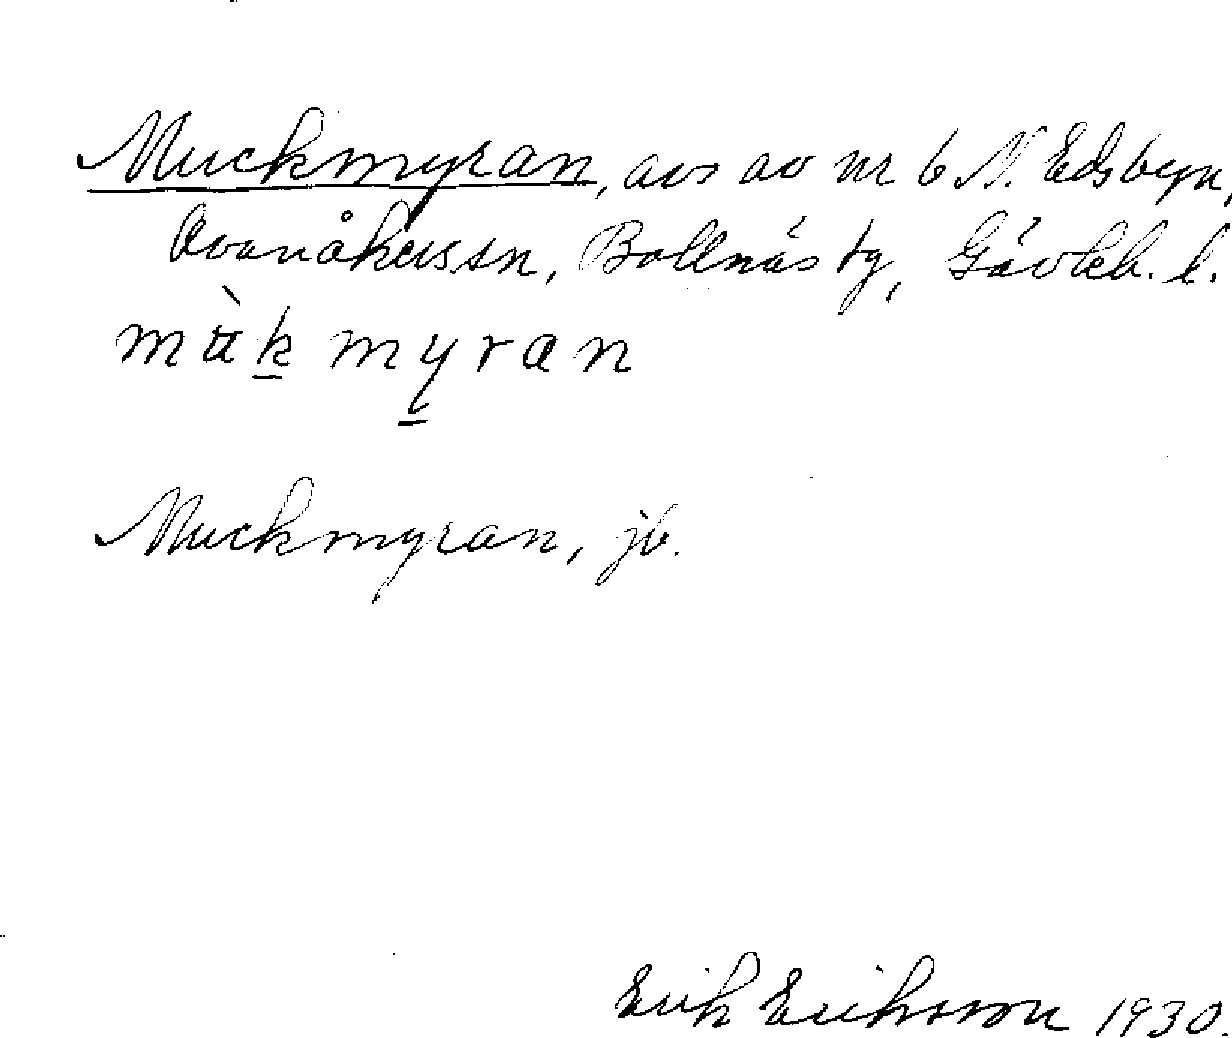 Muckmyran, avs av nr 6 N. Edsbyn,
Ovanåkerssn, Bollnäs tg, Gävleb. l.
myran
Muckmyran, jb.
Erik Eriksson 1930.